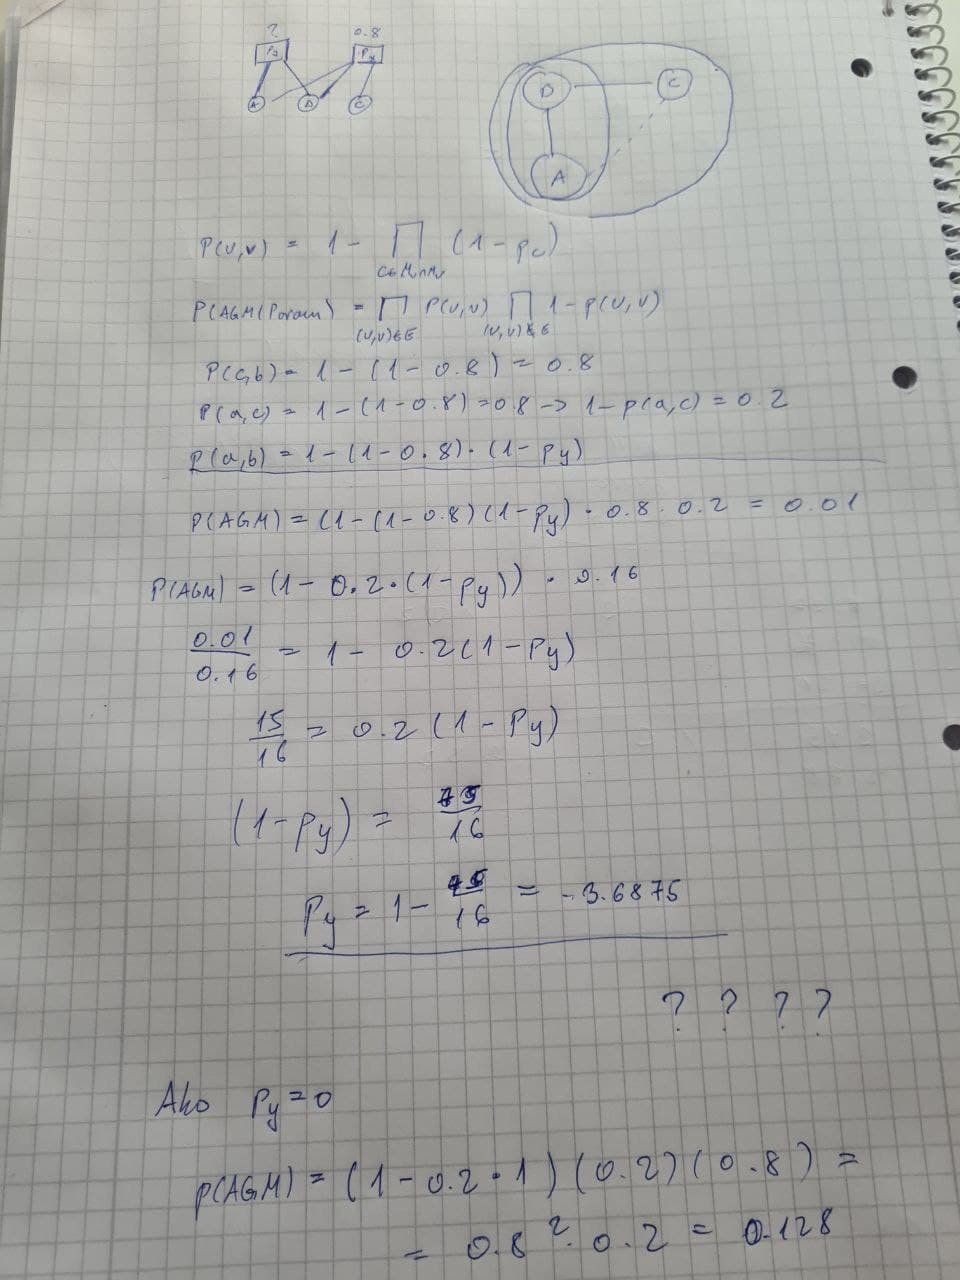 ? 0.8
Py Px
A B C
B C
A
P(u,v) = 1 - ∏ (1 - pc)
C∈Mu∩Mv
P(AGM(Param) = ∏ P(u,v) ∏ 1 - p(u,v)
(u,v)∈E (u,v)∉E
P(c,b) = 1 - (1 - 0.8) = 0.8
P(a,c) = 1 - (1 - 0.8) = 0.8 -> 1 - p(a,c) = 0.2
P(a,b) = 1 - (1 - 0.8) · (1 - Py)
P(AGM) = (1 - (1 - 0.8)(1 - Py) · 0.8 · 0.2 = 0.01
P(AGM) = (1 - 0.2 · (1 - Py)) · 0.16
0.01/0.16 = 1 - 0.2(1 - Py)
15/16 = 0.2(1 - Py)
(1 - Py) = 75/16
Py = 1 - 75/16 = -3.6875
? ? ? ?
Ako Py = 0
P(AGM) = (1 - 0.2 · 1)(0.2)(0.8) =
= 0.8² · 0.2 = 0.128